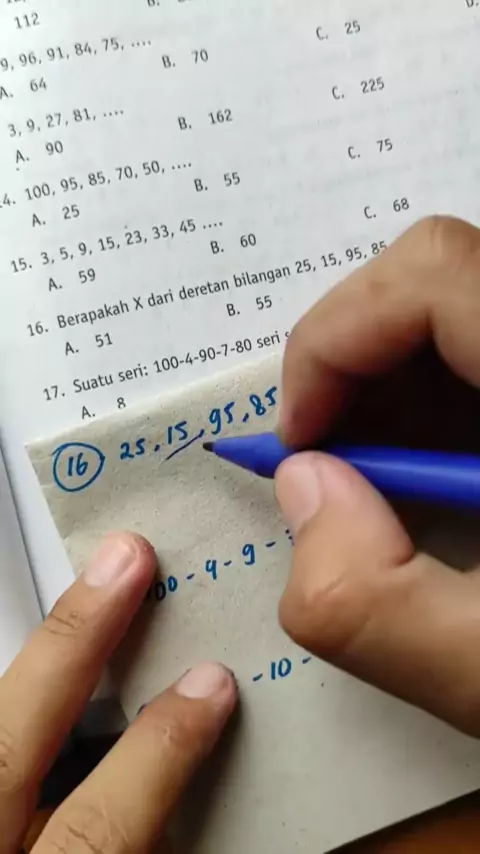 112
9, 96, 91, 84, 75, ....
A. 64 B. 70 C. 25
3, 9, 27, 81, ....
A. 90 B. 162 C. 225
4. 100, 95, 85, 70, 50, ....
A. 25 B. 55 C. 75
15. 3, 5, 9, 15, 23, 33, 45 ....
A. 59 B. 60 C. 68
16. Berapakah X dari deretan bilangan 25, 15, 95, 85
A. 51 B. 55
17. Suatu seri: 100-4-90-7-80 seri
A. 8
16 25, 15, 95, 85
00 - 4 - 9 -
- 10 -